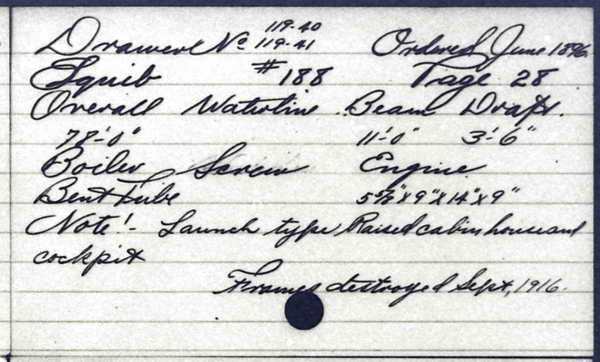 119-40
Drawer No 119-41 Ordered June 1896
Squib #188 Page 28
Overall Waterline Beam Draft.
78'-0" 11'-0" 3'-6"
Boiler Screw Engine
Bent Tube 5½"x9"x14"x9"
Note!- Launch type Raised cabin house and
cockpit
Frames destroyed Sept, 1916.